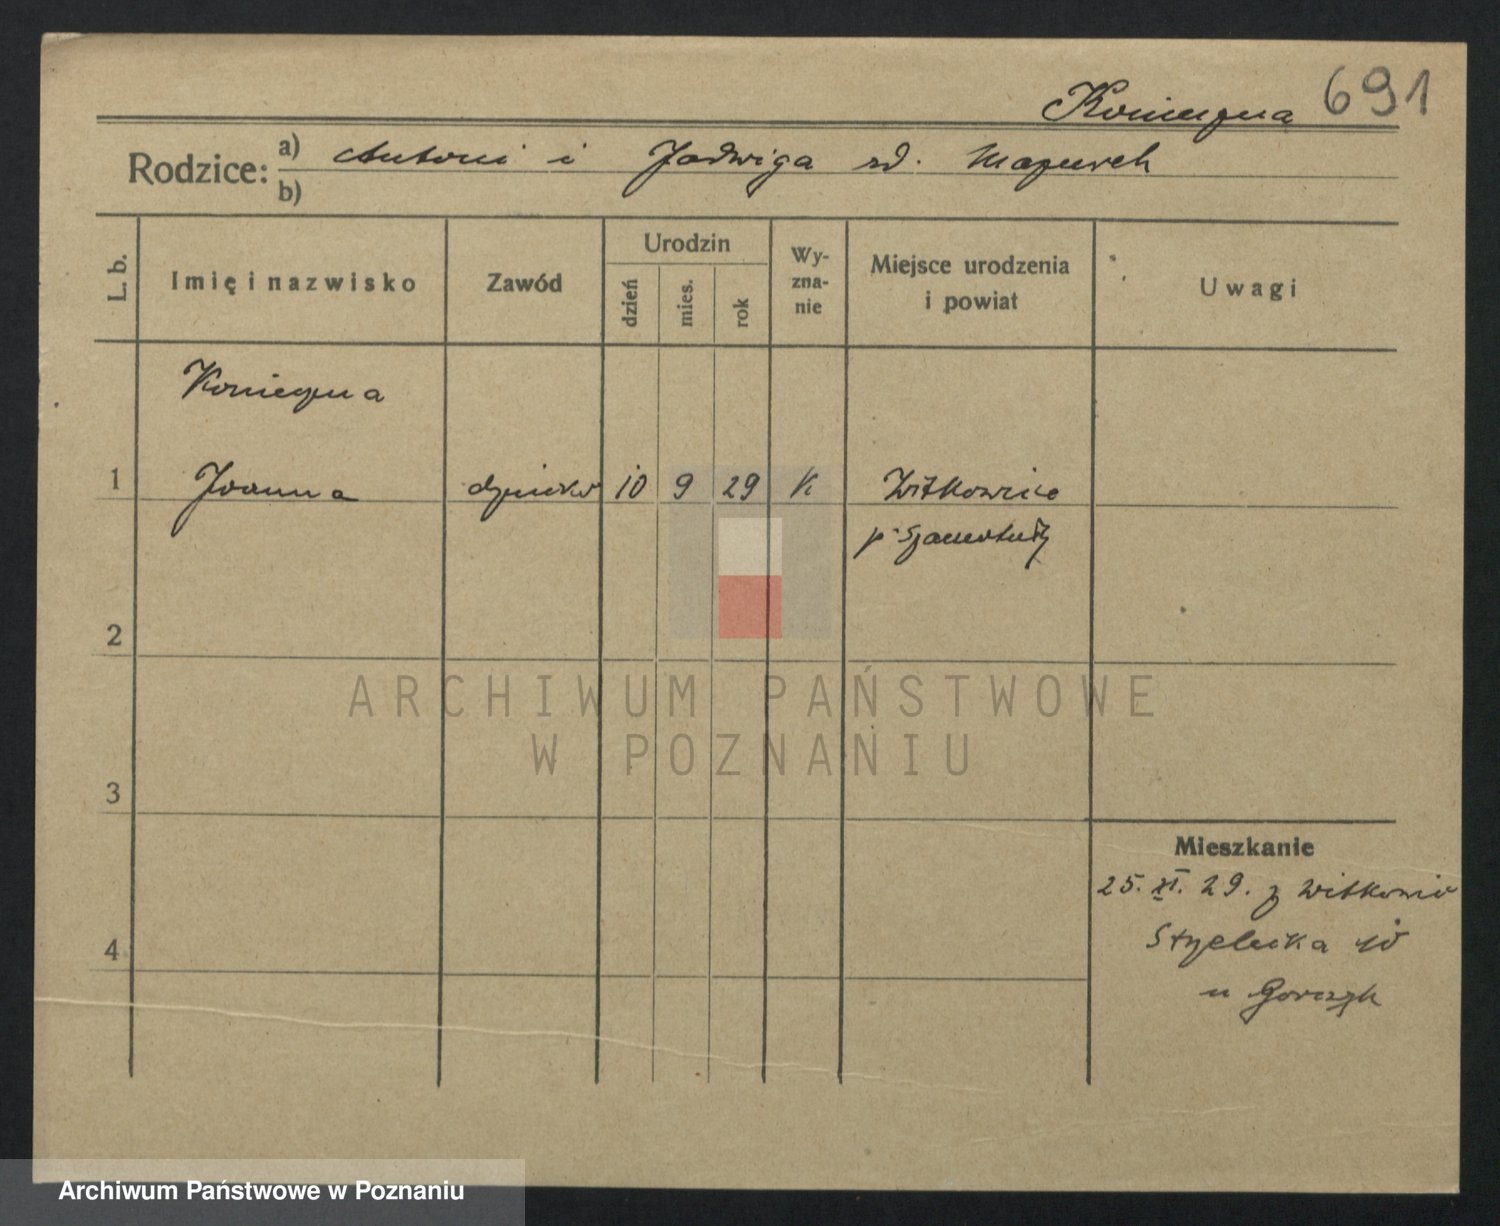 Konieczna 691
Rodzice: a) Antoni i Jadwiga zd. Mazurek
b)
L. b.
Imię i nazwisko
Zawód
Urodzin
dzień
mies.
rok
Wy-
zna-
nie
Miejsce urodzenia
i powiat
Uwagi
Konieczna
1 Joanna dziecko 10 9 29 K Witkowice
p. Szamotuły
2
ARCHIWUM PAŃSTWOWE
W POZNANIU
3
Mieszkanie
25. XI. 29. z Witkowic
4
Strzelecka 10
u Gorczyk
Archiwum Państwowe w Poznaniu